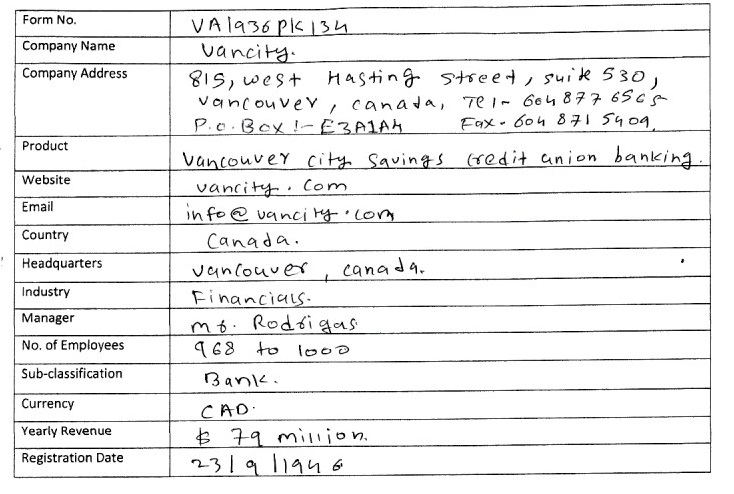 Form No. VA1936PK134
Company Name Vancity.
Company Address 815, west Hasting street, suite 530,
vancouver, canada, Tel- 604 877 6565
P.O. Box :- E3A1A4 Fax- 604 871 5409,
Product Vancouver city Savings Credit union banking.
Website vancity.com
Email info@vancity.com
Country Canada.
Headquarters vancouver, canada.
Industry Financials.
Manager Mr. Rodrigas.
No. of Employees 968 to 1000
Sub-classification Bank.
Currency CAD.
Yearly Revenue $ 79 million.
Registration Date 23/9/1946